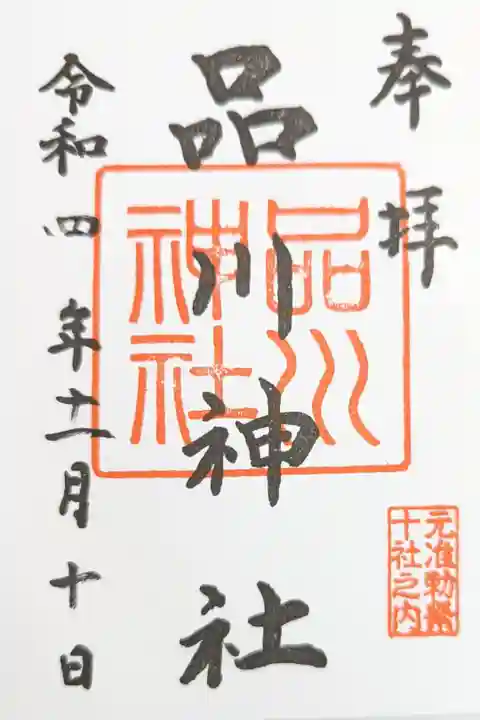 奉拝
品川神社
品川
神社
元准勅祭
十社之内
令和四年十一月十日